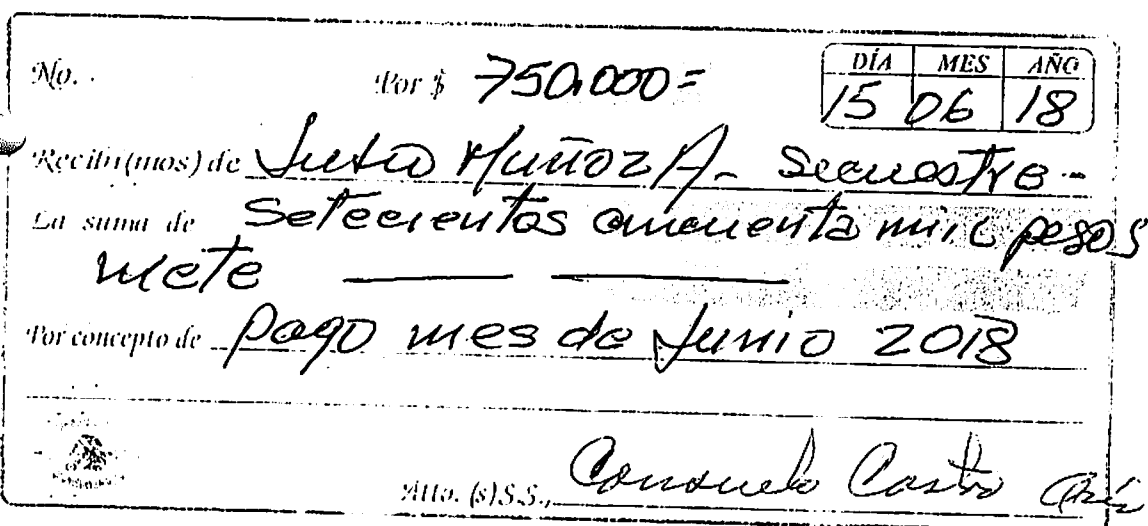 No. Por $ 750.000= DÍA MES AÑO
15 06 18
Recibí(mos) de Muñoz A. Secuestre -
La suma de Setecientos cincuenta mil pesos
mcte
Por concepto de pago mes de Junio 2018
Atto. (s) S.S., Consuelo Castro